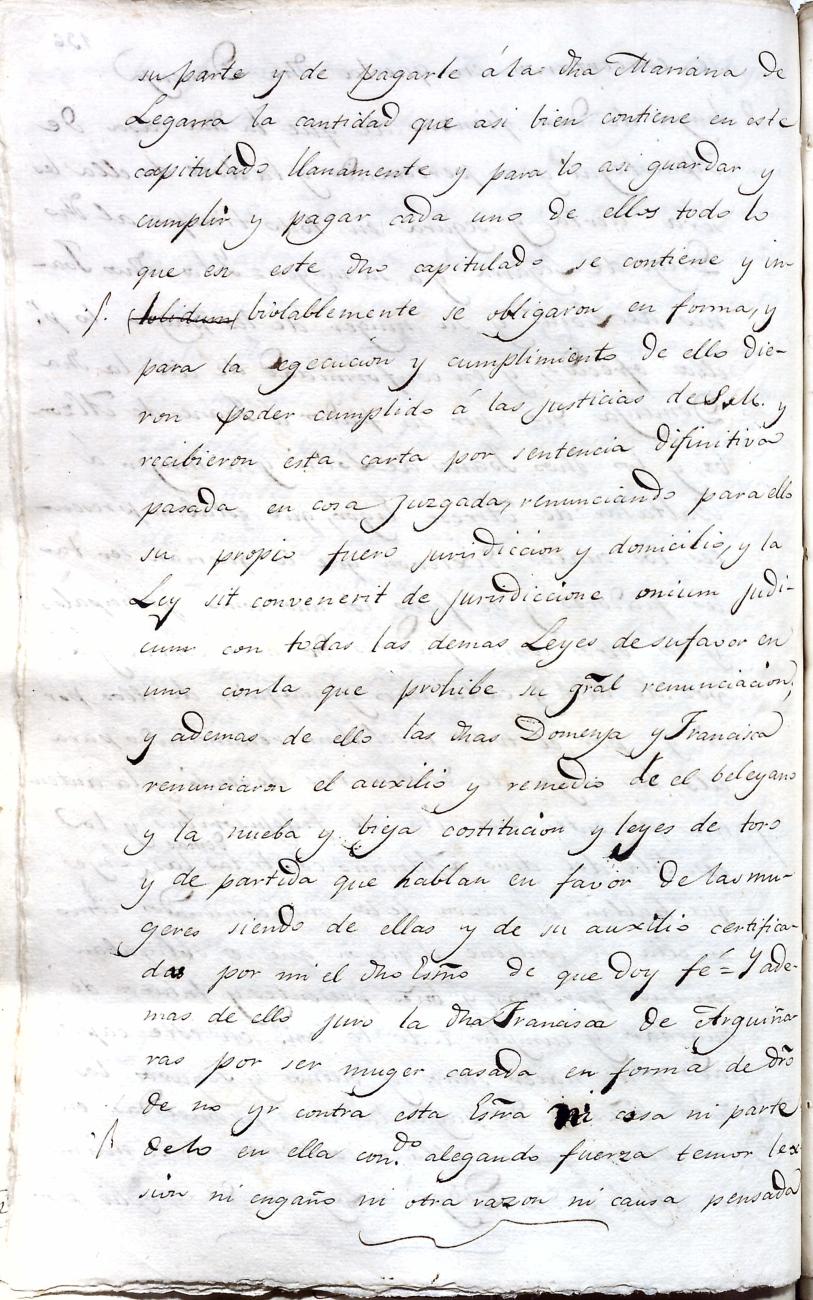 su parte y de pagarle á la dha Mariana de
Legarra la cantidad que asi bien contiene en este
capitulado llanamente y para lo asi guardar y
cumplir y pagar cada uno de ellos todo lo
que en este dho capitulado se contiene y in-
biolablemente se obligaron en forma, y
para la egecucion y cumplimiento de ello die-
ron poder cumplido á las justicias de S.M. y
recibieron esta carta por sentencia difinitiva
pasada en cosa juzgada, renunciando para ello
su propio fuero jurisdiccion y domicilio, y la
Ley sit convenerit de jurisdiccione onium judi-
cum con todas las demas Leyes de su favor en
uno con la que prohibe su gral renunciacion,
y ademas de ello las dhas Domenja y Francisca
renunciaron el auxilio y remedio de el beleyano
y la nueba y bieja costitucion y leyes de toro
y de partida que hablan en favor de las mu-
geres siendo de ellas y de su auxilio certifica-
das por mi el dho Esno de que doy fé = Y ade-
mas de ello juro la dha Francisca de Arguiña-
ras por ser muger casada en forma de dro
de no yr contra esta Esra ni cosa ni parte
de lo en ella con.do alegando fuerza temor lex-
sion ni engaño ni otra razon ni causa pensada